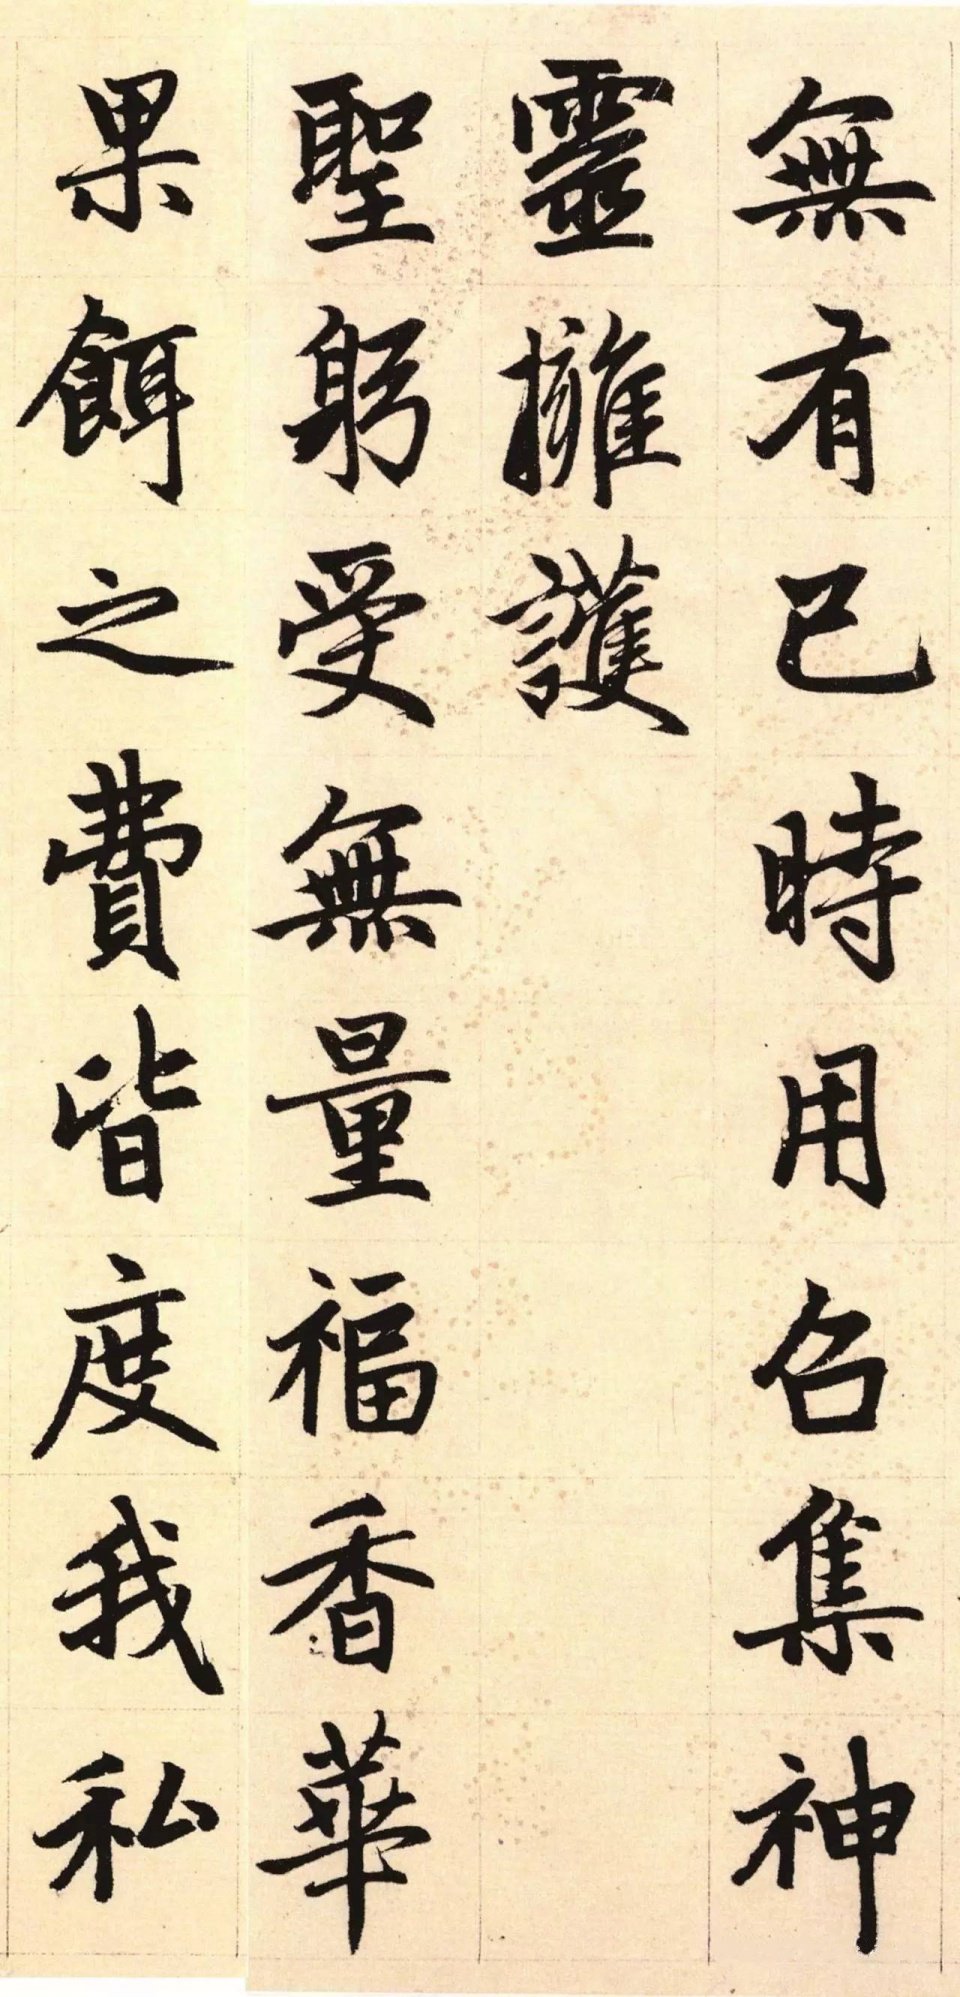 無有已時用召集神
靈擁護
聖躬受無量福香華
果餌之費皆度我私